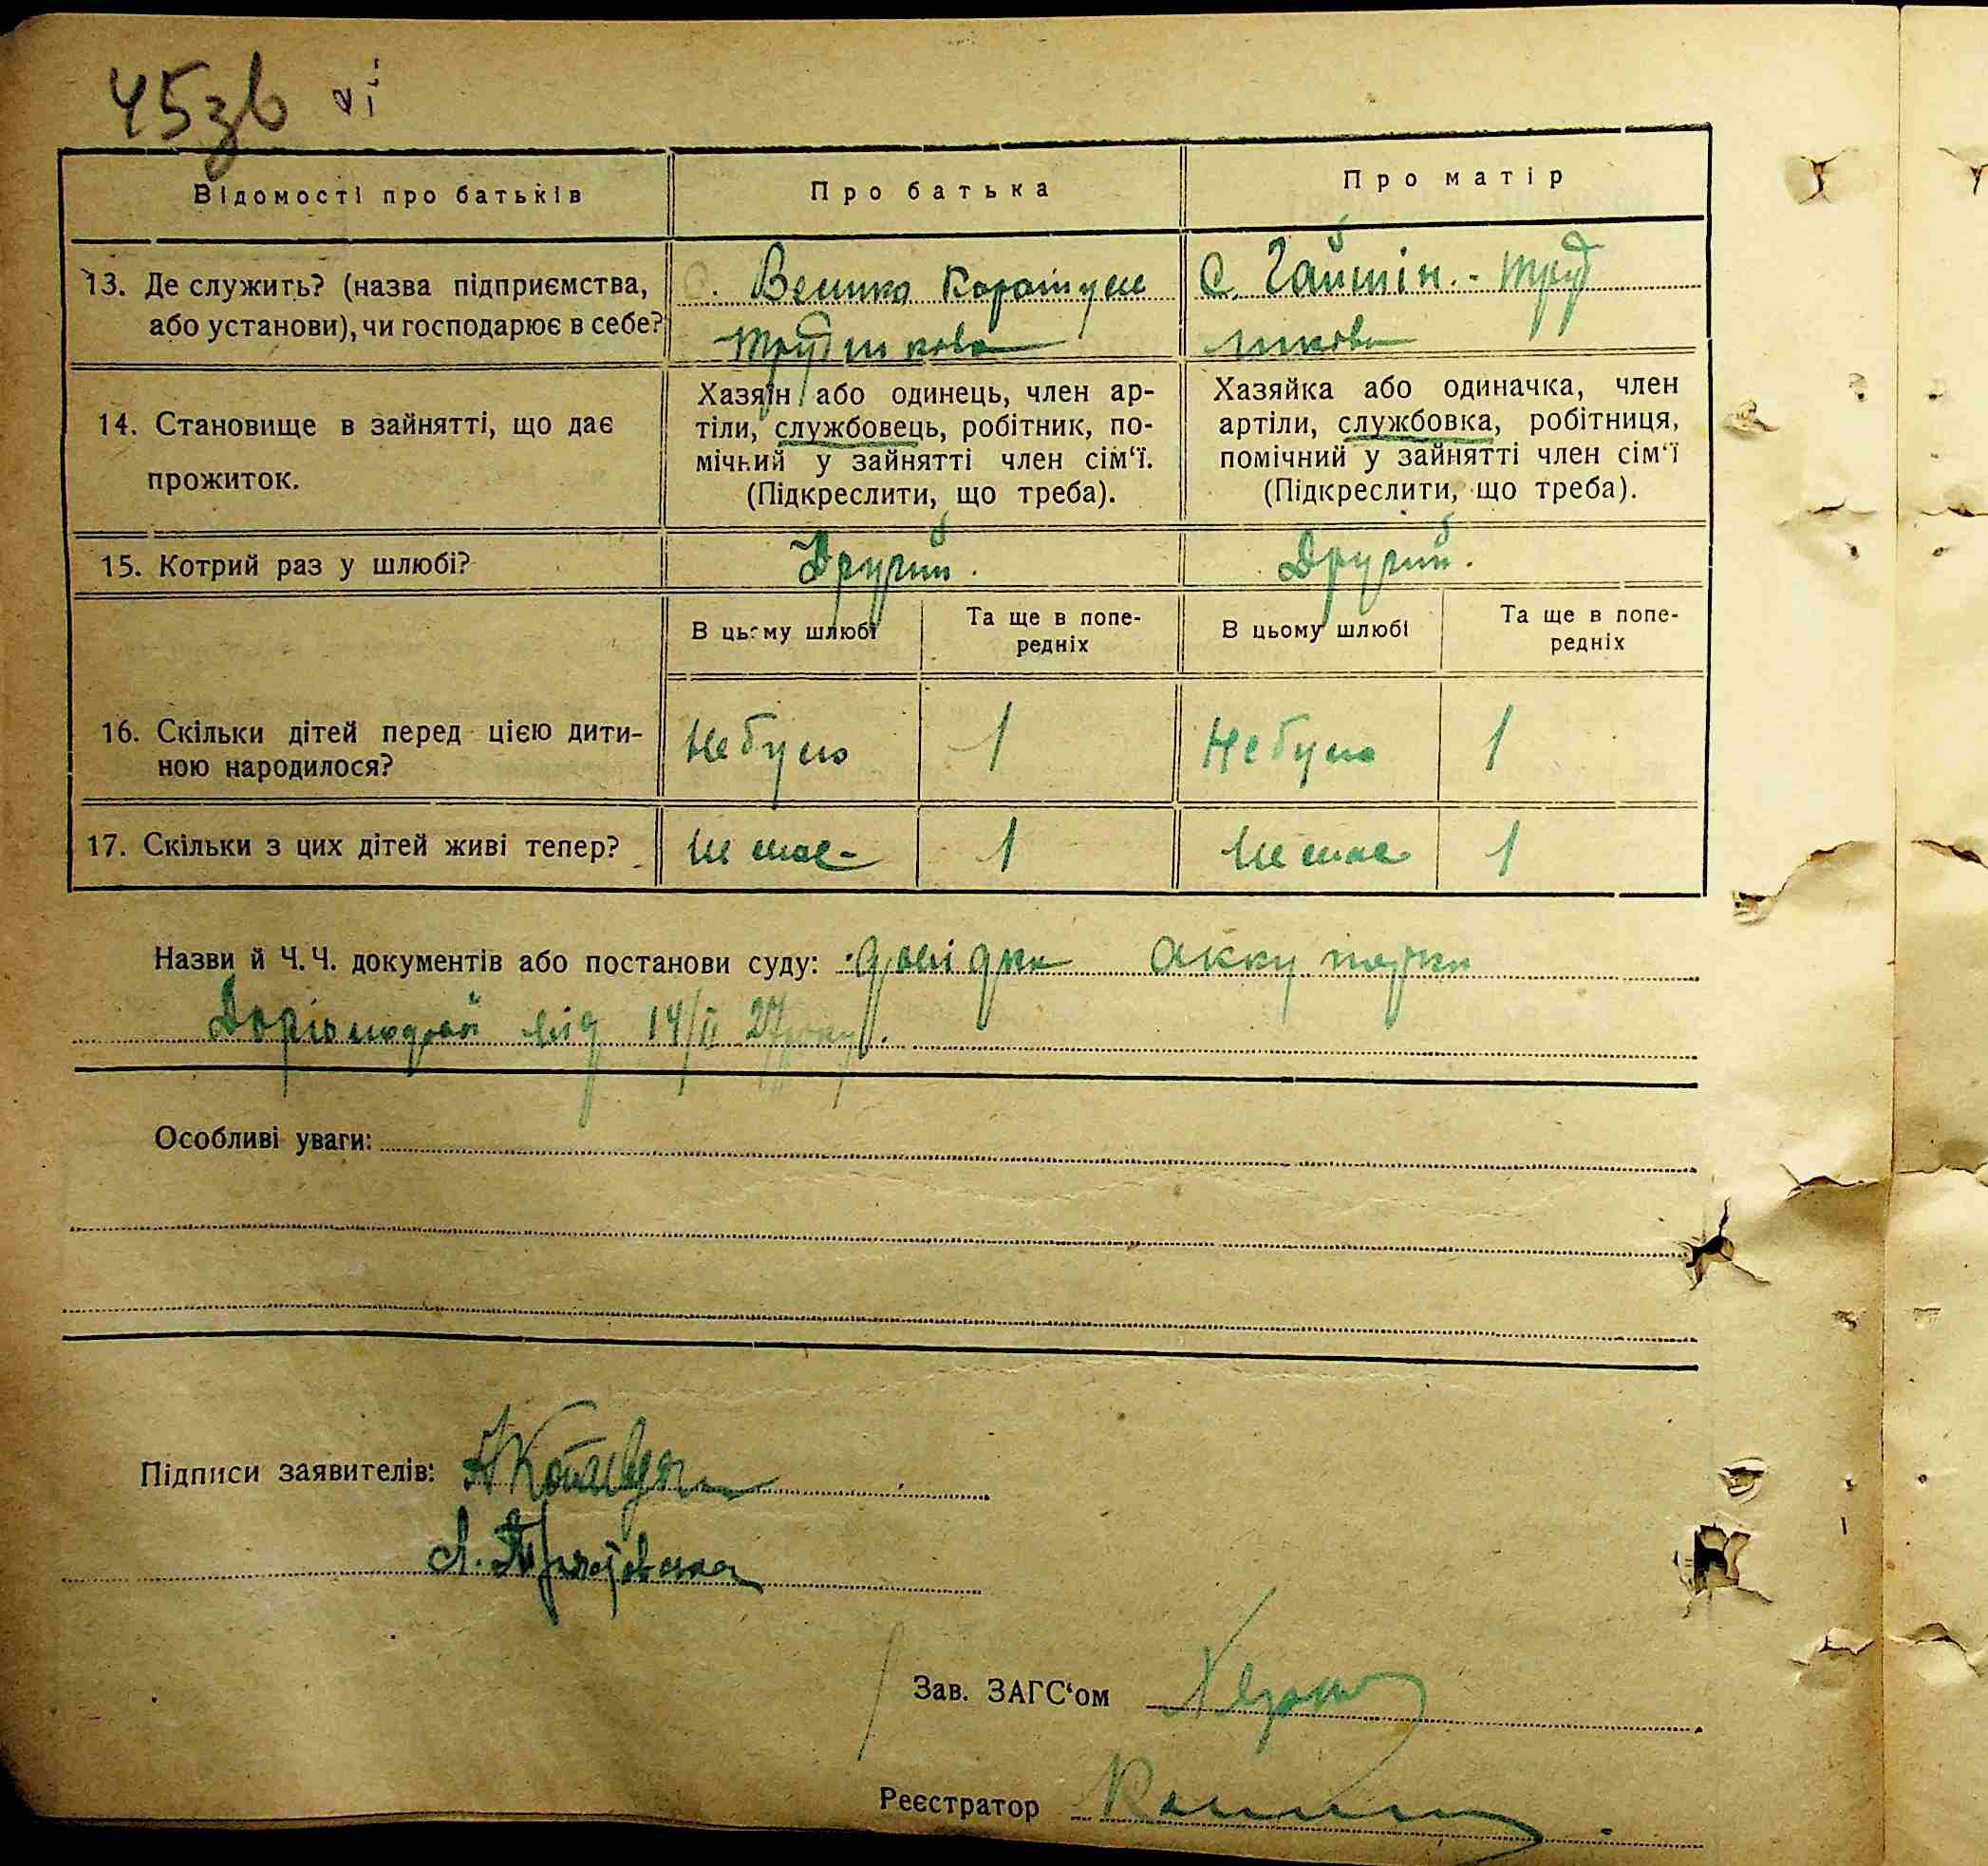 45зв
Відомості про батьків
Про батька
Про матір
13. Де служить? (назва підприємства, або установи), чи господарює в себе?
С. Велика Каратуль
трудшкола
С. Гайшін. - труд
школа
14. Становище в зайнятті, що дає
прожиток.
Хазяїн або одинець, член ар-
тіли, службовець, робітник, по-
мічний у зайнятті член сім'ї.
(Підкреслити, що треба).
Хазяйка або одиначка, член
артіли, службовка, робітниця,
помічний у зайнятті член сім'ї
(Підкреслити, що треба).
15. Котрий раз у шлюбі?
Другий.
Другий.
В цьому шлюбі
Та ще в попе-
редніх
В цьому шлюбі
Та ще в попе-
редніх
16. Скільки дітей перед цією дити-
ною народилося?
Не було
1
Не було
1
17. Скільки з цих дітей живі тепер?
Немає
1
Немає
1
Назви й Ч. Ч. документів або постанови суду: довідка акушерки
від 14/II 27 року.
Особливі уваги:
Підписи заявителів:
Зав. ЗАГС'ом
Реєстратор